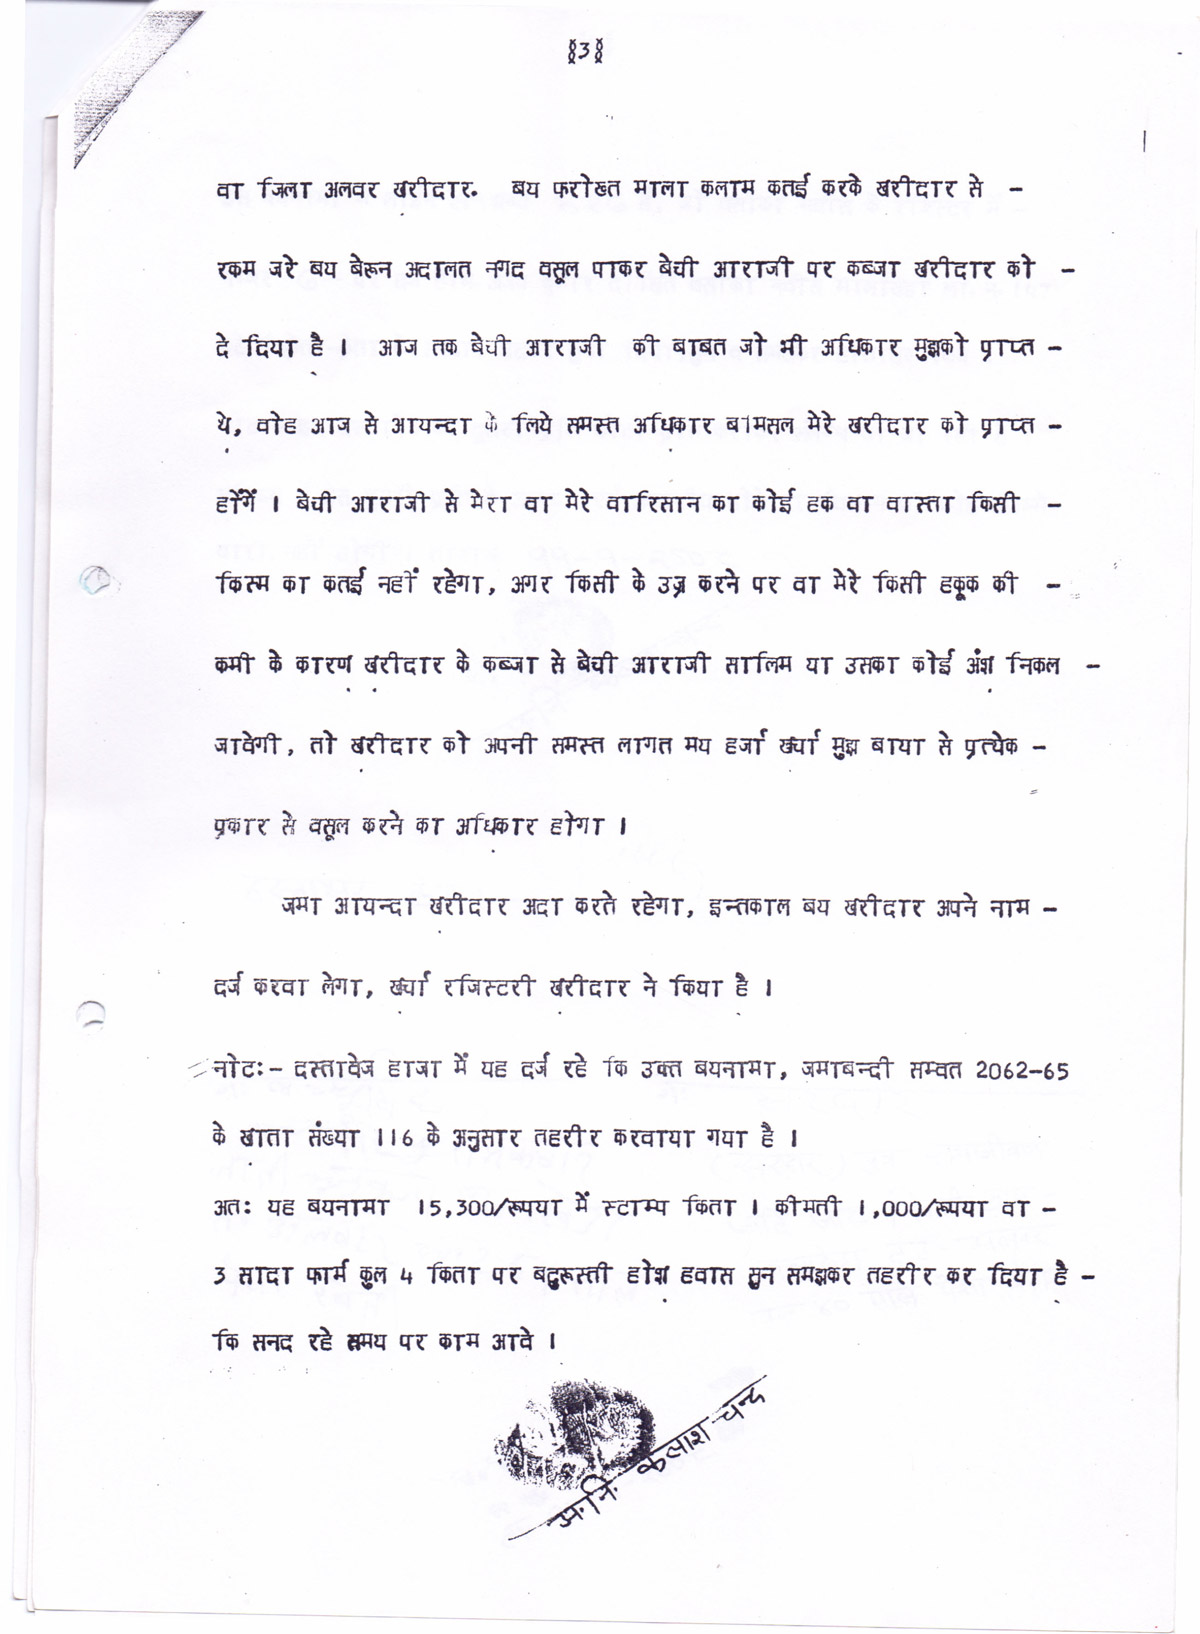 §3§
वा जिला अलवर खरीदार. बय फरोख्त माला कलाम कतई करके खरीदार से -
रकम जरे बय बेरून अदालत नगद वसूल पाकर बेची आराजी पर कब्जा खरीदार को -
दे दिया है । आज तक बेची आराजी की बाबत जो भी अधिकार मुझको प्राप्त -
थे, वोह आज से आयन्दा के लिये समस्त अधिकार बामिसल मेरे खरीदार को प्राप्त -
होंगें । बेची आराजी से मेरा वा मेरे वारिसान का कोई हक वा वास्ता किसी -
किस्म का कतई नहीं रहेगा, अगर किसी के उज्र करने पर वा मेरे किसी हकूक की -
कमी के कारण खरीदार के कब्जा से बेची आराजी सालिम या उसका कोई अंश निकल -
जावेगी, तो खरीदार को अपनी समस्त लागत मय हर्जा खर्चा मुझ बाया से प्रत्येक -
प्रकार से वसूल करने का अधिकार होगा ।
जमा आयन्दा खरीदार अदा करते रहेगा, इन्तकाल बय खरीदार अपने नाम -
दर्ज करवा लेगा, खर्चा रजिस्टरी खरीदार ने किया है ।
नोटः- दस्तावेज हाजा में यह दर्ज रहे कि उक्त बयनामा, जमाबन्दी सम्वत 2062-65
के खाता संख्या 116 के अनुसार तहरीर करवाया गया है ।
अतः यह बयनामा 15,300/रूपया में स्टाम्प किता 1 कीमती 1,000/रूपया वा -
3 सादा फार्म कुल 4 किता पर बदुरूस्ती होश हवास सुन समझकर तहरीर कर दिया है -
कि सनद रहे समय पर काम आवे ।
अ.नि. कैलाश चन्द